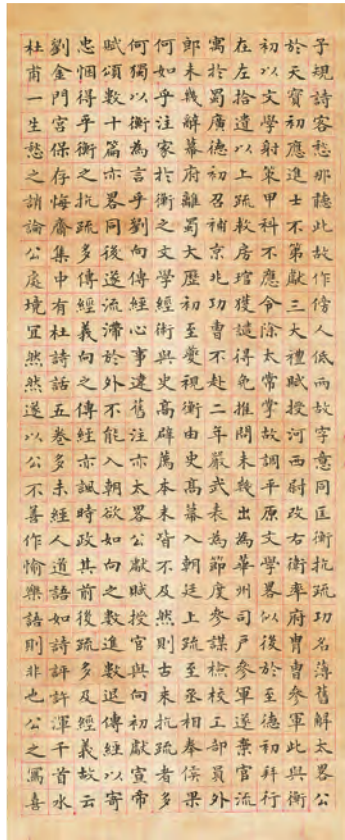 子規詩客愁那聽此故作傍人低而故字意同匡衡抗疏功名薄舊解太畧公
於天寶初應進士不第獻三大禮賦授河西尉改右衛率府胄曹參軍此與衡
初以文學射策甲科不應令除太常掌故調平原文學畧似後於至德初拜行
在左拾遺以上疏救房琯獲譴得免推問未幾出為華州司戶參軍遂棄官流
寓於蜀廣德初召補京兆功曹不赴二年嚴武表為節度參謀檢校工部員外
郎未幾解幕府離蜀大歷初至夔視衡由史高幕入朝廷上疏至丞相奉侯果
何如乎注家於衡之文學經術與史高辟薦本末皆不及然則古來抗疏者多
何獨以衡為言乎劉向傳經心事違舊注亦太畧公獻賦授官與向初獻宣帝
賦頌數十篇亦畧同後遂流滯於外不能入朝欲如向之數進數退傳經以寄
忠悃得乎衡之抗疏多傳經義向之傳經亦諷時政其前後疏多及經義故云
劉金門宮保存悔齋集中有杜詩話五卷多未經人道語如詩評許渾千首水
杜甫一生愁之誚論公處境宜然然遂以公不善作愉樂語則非也公之寫喜